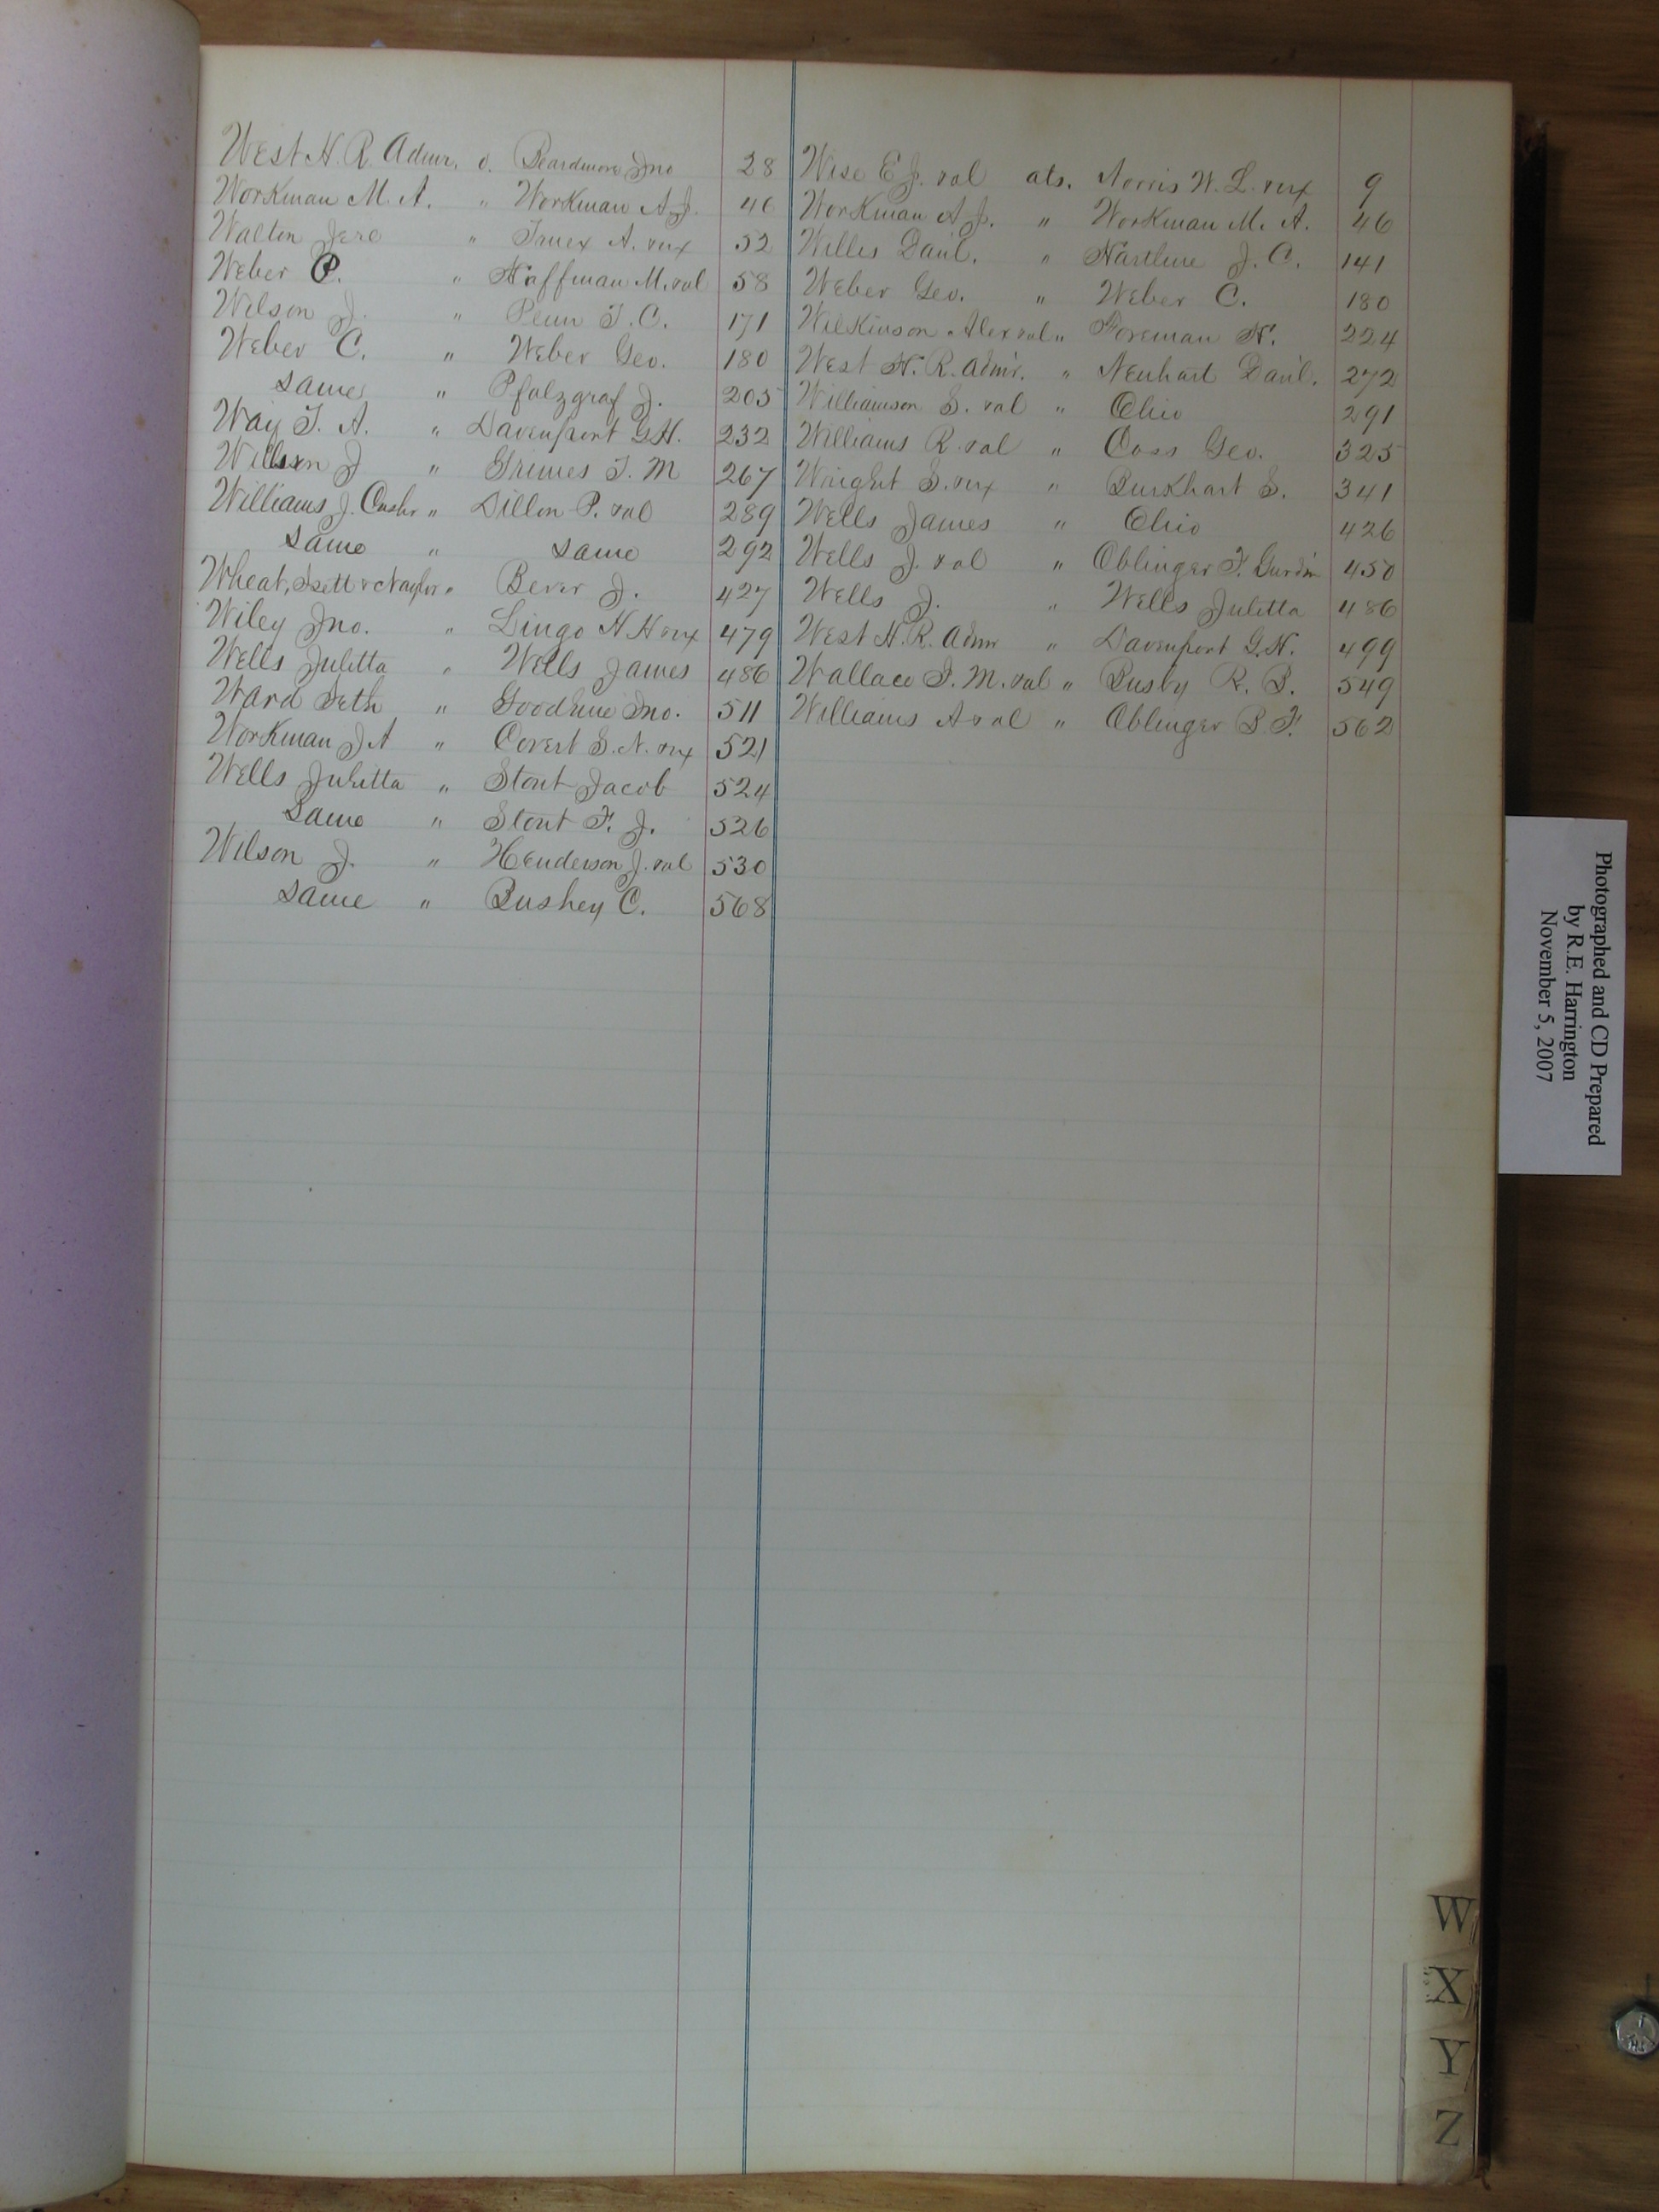 West H. R. Admr. v. Beardmore Jno 28
Workman M. A. " Workman A. J. 46
Walton Jere " Truex A. vux 52
Weber P. " Haffman M. val 58
Wilson J. " Penn T. C. 171
Weber C. " Weber Geo. 180
Same " Pfalzgraf J. 205
Way T. A. " Davenport G. H. 232
Wilson J " Grimes T. M 267
Williams J. Cashr " Dillon P. val 289
Same " Same 292
Wheat, & Naylor " Bever J. 427
Wiley Jno. " Lingo H H vux 479
Wells Juletta " Wells James 486
Ward Seth " Jno. 511
Workman J A " Covert S. N. vux 521
Wells Juletta " Stout Jacob 524
Same " Stout F. J. 526
Wilson J. " Henderson J. val 530
Same " Bushey C. 568
Wise E J. val ats. Norris W. L. vux 9
Workman A J. " Workman M. A. 46
Willis Danl. " Hartline J. C. 141
Weber Geo. " Weber C. 180
Wilkinson Alex val " Foreman H. 224
West H. R. Admr. " Neuhart Danl. 272
Williamson S. val " Ohio 291
Williams R. val " Coss Geo. 325
Wright S. vux " Burkhart S. 341
Wells James " Ohio 426
Wells J. val " Oblinger F. Gurdn 450
Wells J. " Wells Juletta 486
West H. R. Admr " Davenport G. H. 499
Wallace T. M. val " Busby R. B. 549
Williams A val " Oblinger B. F. 562
Photographed and CD Prepared
by R.E. Harrington
November 5, 2007
W
X
Y
Z